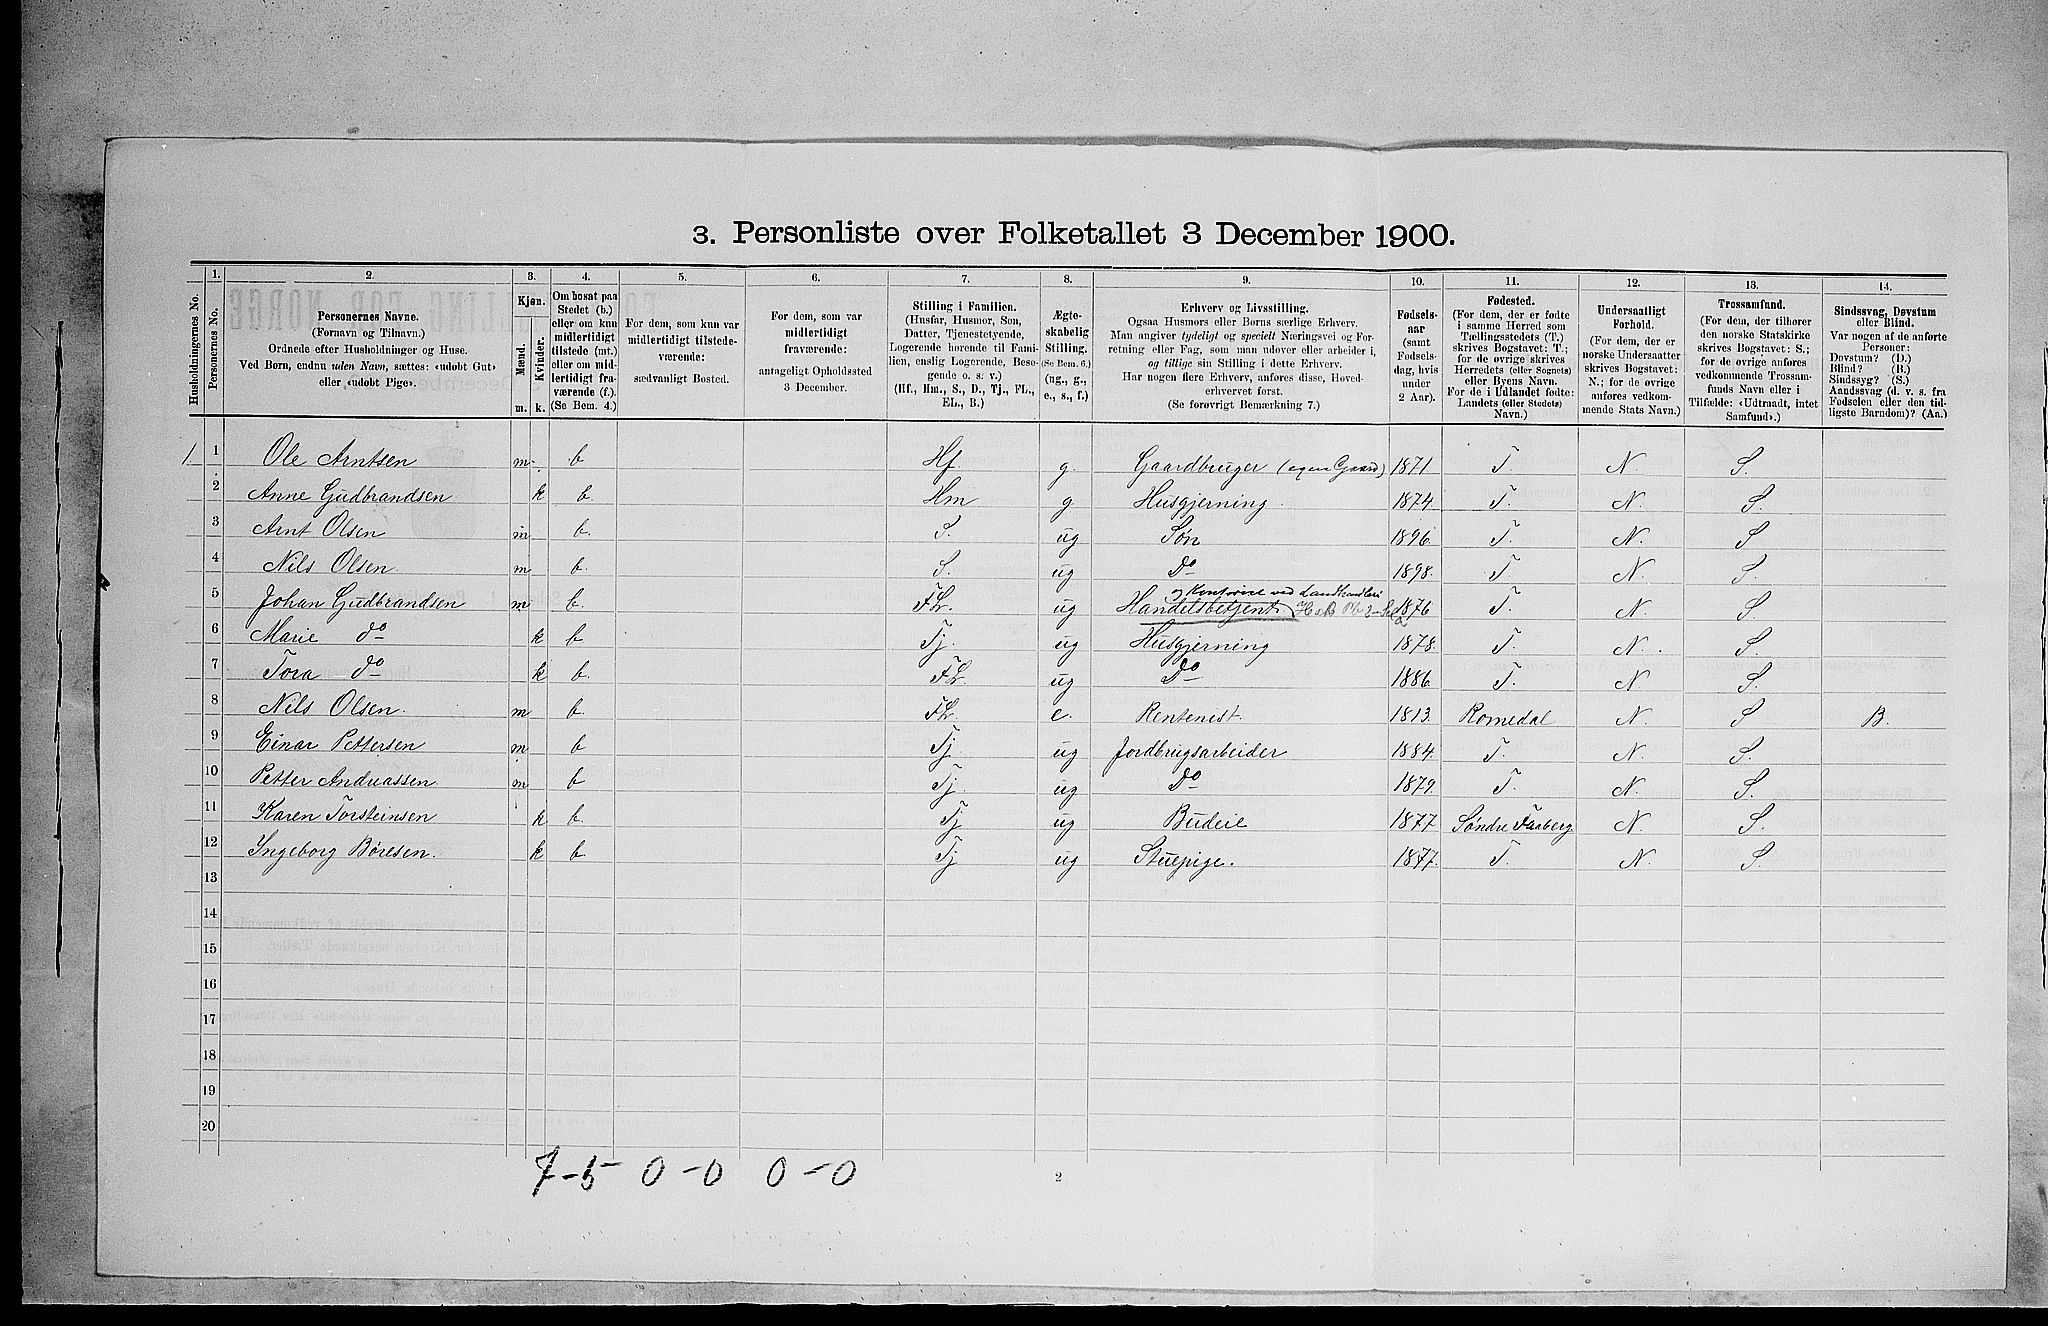 3. Personliste over Folketallet 3 December 1900.
Husholdningernes No.
1.
Personernes No.
2.
Personernes Navne.
(Fornavn og Tilnavn.)
Ordnede efter Husholdninger og Huse.
Ved Børn, endnu uden Navn, sættes: «udobt Gut»
eller «udobt Pige».
3.
Kjøn.
Mænd.
Kvinder.
m. k.
4.
Om bosat paa
Stedet (b.)
eller om kun
midlertidigt
tilstede (mt.)
eller om mid-
lertidigt fra-
værende (f.)
(Se Bem. 4.)
5.
For dem, som kun var
midlertidigt tilstede-
værende:
sædvanligt Bosted.
6.
For dem, som var
midlertidigt
fraværende:
antageligt Opholdssted
3 December.
7.
Stilling i Familien.
(Husfar, Husmor, Søn,
Datter, Tjenestetyende,
Logerende hørende til Fami-
lien, enslig Logerende, Besø-
gende o. s. v.)
(Hf., Hm., S., D., Tj., FL.,
EL., B.)
8.
Ægte-
skabelig
Stilling.
(Se Bem. 6.)
(ug., g.,
e., s., f.)
9.
Erhverv og Livsstilling.
Ogsaa Husmors eller Børns særlige Erhverv.
Man angiver tydeligt og specielt Næringsvei og For-
retning eller Fag, som man udøver eller arbeider i,
og tillige sin Stilling i dette Erhverv.
Har nogen flere Erhverv, anføres disse, Hoved-
erhvervet først.
(Se forøvrigt Bemærkning 7.)
10.
Fødsels-
aar
(samt
Fødsels-
dag, hvis
under
2 Aar).
11.
Fødested.
(For dem, der er fødte
i samme Herred som
Tællingsstedets (T.)
skrives Bogstavet: T.;
for de øvrige skrives
Herredets (eller Sognets)
eller Byens Navn.
For de i Udlandet fødte:
Landets (eller Stedets)
Navn.)
12.
Undersaatligt
Forhold.
(For dem, der er
norske Undersaatter
skrives Bogstavet:
N.; for de øvrige
anføres vedkom-
mende Stats Navn.)
13.
Trossamfund.
(For dem, der tilhører
den norske Statskirke
skrives Bogstavet: S.;
for de øvrige anføres
vedkommende Trossam-
funds Navn eller i
Tilfælde: «Udtraadt, intet
Samfund».)
14.
Sindssvag, Døvstum
eller Blind.
Var nogen af de anførte
Personer:
Døvstum? (D.)
Blind? (B.)
Sindssyg? (S.)
Aandssvag (d. v. s. fra
Fødselen eller den tid-
ligste Barndom)? (Aa.)
1 1 Ole Arntsen m. b Hf. g. Gaardbruger (egen Gaard) 1871 T. N. S.
2 Anne Gudbrandsen k b. Hm g Husgjerning. 1874. T. N. S.
3 Arnt Olsen m b. S. ug Søn 1896. T. N. S
4 Nils Olsen. m b. S. ug Do 1898. T. N. S.
og Kontorist ved Landhandleri
5 Johan Gudbrandsen m b. FL. ug Handelsbetjent. 1876 T. N. S.
6 Marie do k b Tj. ug Husgjerning 1878. T. N. S.
7 Tora do k b. FL. ug Do 1886. T. N. S.
8 Nils Olsen. m b. FL. e. Rentenist. 1813. Romedal N. S B.
9 Einar Pettersen m b Tj. ug Jordbrugsarbeider 1884. T. N. S.
10 Petter Andreassen m b Tj. ug Do 1879. T. N. S.
11 Karen Torsteinsen k b. Tj ug Budeie 1877 Søndre Faaberg N. S.
12 Ingeborg Børesen. k b Tj ug Stuepige. 1877. T. N. S.
13
14
15
16
17
18
19
20
7-5 0-0 0-0
2